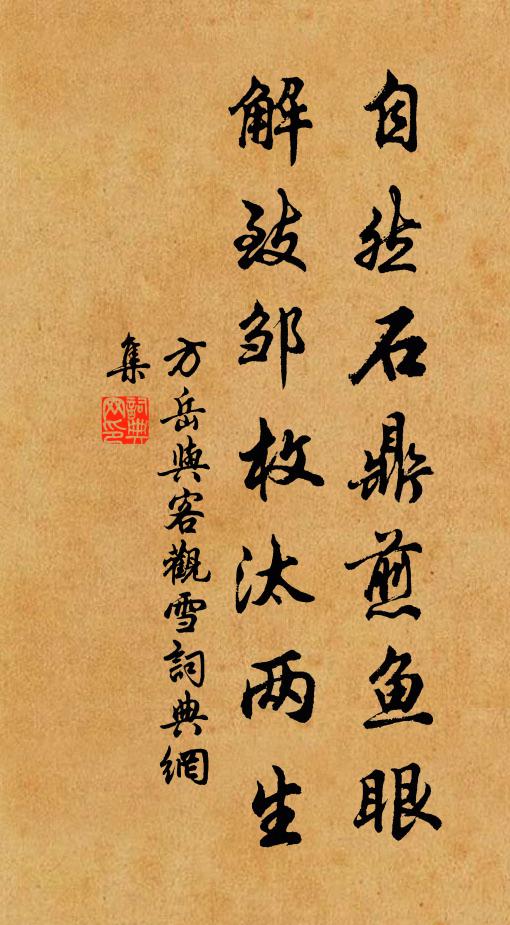 自然石鼎煎鱼眼
解致邹枚汰两生
方岳與客觀雪詞典網
集
詞典网印